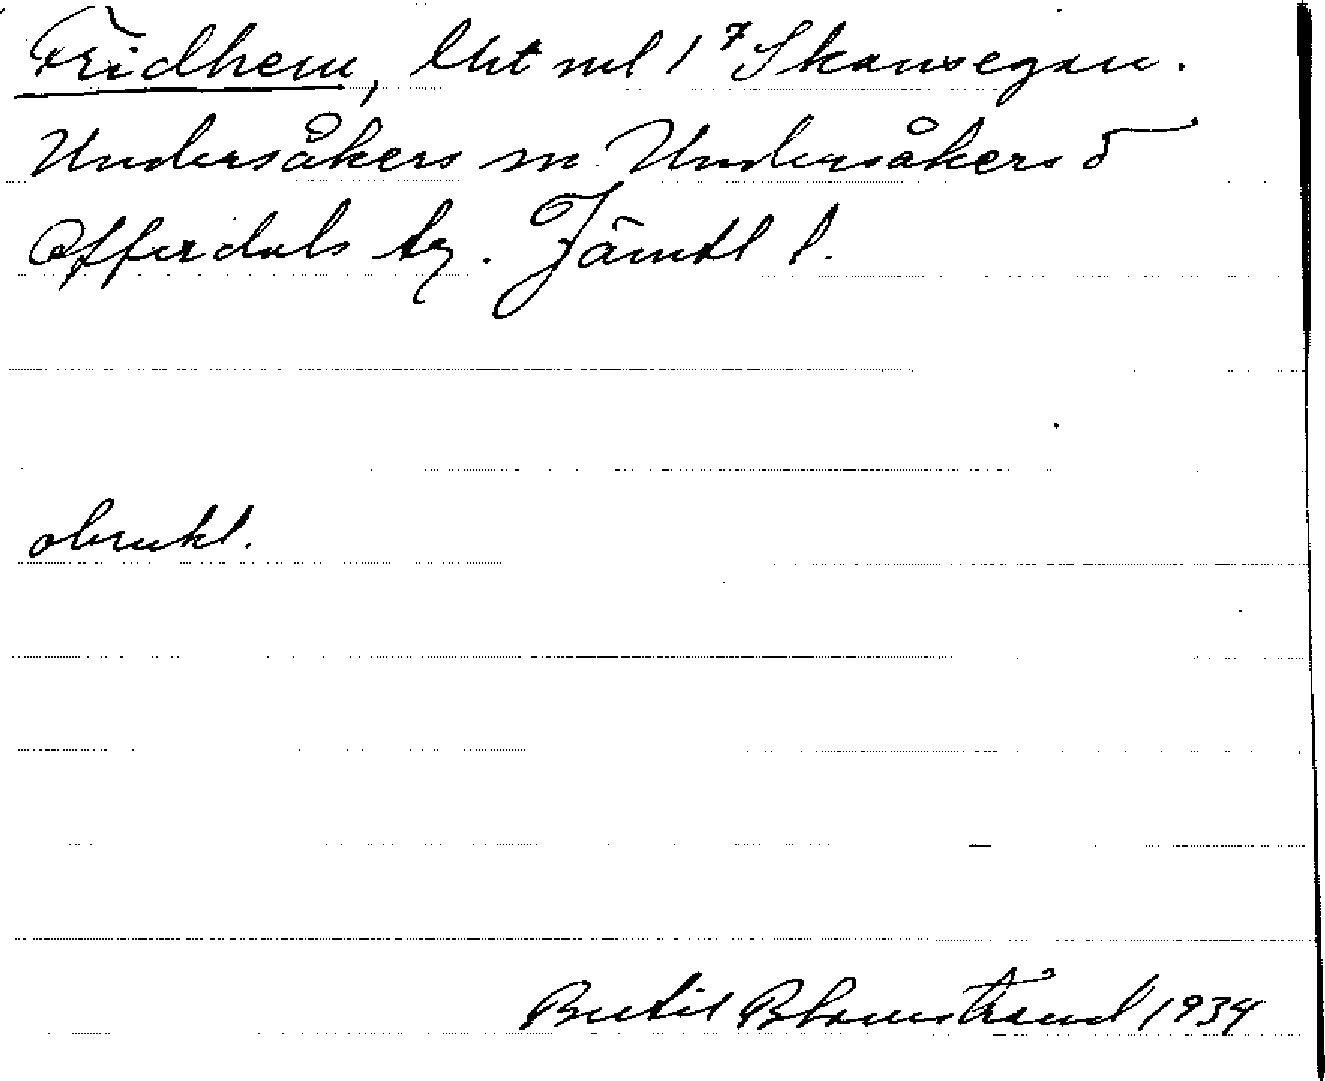 Fridhem, lht nel 1⁷ Skansegan.
Undersåkers sn. Undersåkers o
Offerdals tg. Jämtl l.
obrukl.
Bertil Blomstrand 1934